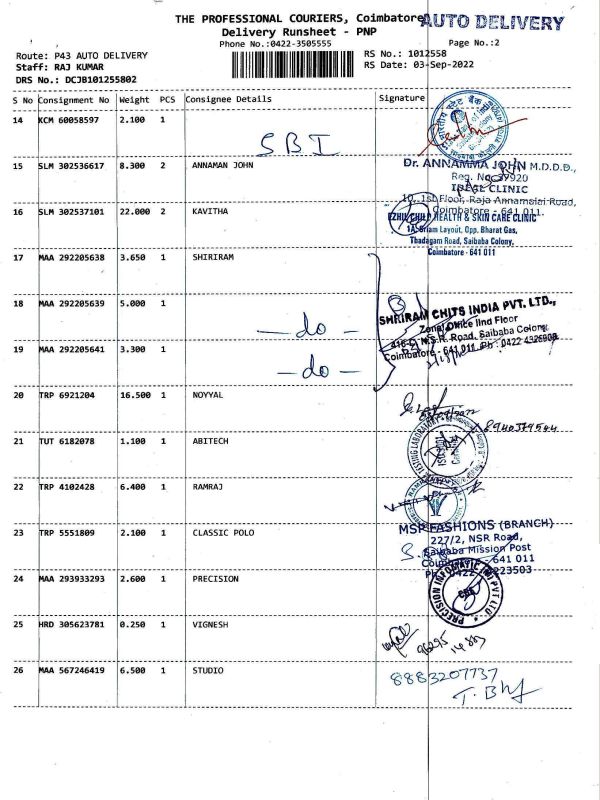 THE PROFESSIONAL COURIERS, Coimbatore
AUTO DELIVERY
Delivery Runsheet - PNP
Phone No.:0422-3505555
Page No.:2
Route: P43 AUTO DELIVERY
RS No.: 1012558
Staff: RAJ KUMAR
RS Date: 03-Sep-2022
DRS No.: DCJB101255802
S No Consignment No Weight PCS Consignee Details Signature
14 KCM 60058597 2.100 1
SBI
15 SLM 302536617 8.300 2 ANNAMAN JOHN
Dr. ANNAMMA JOHN M.D.D.D.,
Reg. No. 37920
IDEAL CLINIC
10, 1st Floor, Raja Annamalai Road,
Coimbatore - 641 011.
16 SLM 302537101 22.000 2 KAVITHA
EZHIL CHILD HEALTH & SKIN CARE CLINIC
1A, Sriram Layout, Opp. Bharat Gas,
Thadagam Road, Saibaba Colony,
Coimbatore - 641 011
17 MAA 292205638 3.650 1 SHRIRIRAM
18 MAA 292205639 5.000 1
SHRIRAM CHITS INDIA PVT. LTD.,
Zonal Office IInd Floor
416-C, N.S.R. Road, Saibaba Colony,
Coimbatore - 641 011. Ph : 0422 4326909
— do —
19 MAA 292205641 3.300 1
— do —
20 TRP 6921204 16.500 1 NOYYAL
21 TUT 6182078 1.100 1 ABITECH
8940379544
TESTING LABORATORY
22 TRP 4102428 6.400 1 RAMRAJ
23 TRP 5551809 2.100 1 CLASSIC POLO
MSP FASHIONS (BRANCH)
227/2, NSR Road,
Saibaba Mission Post
641 011
24 MAA 293933293 2.600 1 PRECISION
PRECISION INFOMATIC (M) PVT LTD
CBE
25 HRD 305623781 0.250 1 VIGNESH
26 MAA 567246419 6.500 1 STUDIO
8883207737